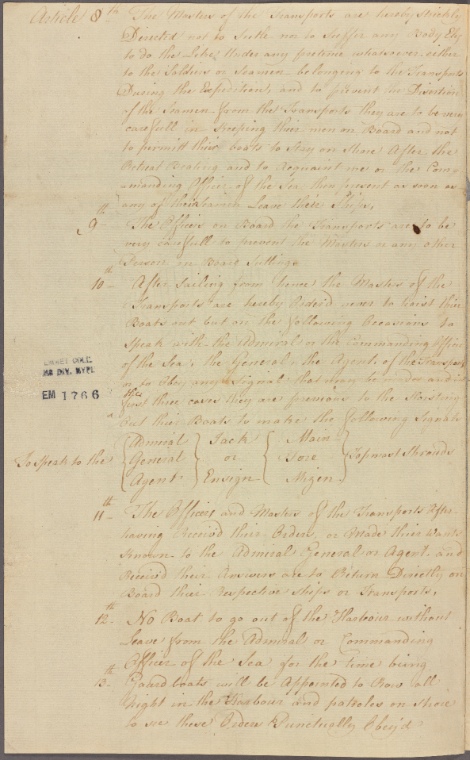 Article 8th The Masters of the Transports are hereby Strickly
Directed not to Suttle nor to Suffer any Body Else
to do the Like, Under any pretence whatsoever either
to the Soldiers or Seamen belonging to the Transports
During the Expedition, and to prevent the Desertion
of the Seamen from the Transports they are to be very
carefull in Keeping their men on Board and not
to permitt their boats to Stay on Shore After the
Retreat Beating and to Acquaint me or the Com
manding Officer of the Sea then present as soon as
any of their Seamen Leave their Ships,
9th The Officers on Board the Transports are to be
very carefull to prevent the Masters or any other
Person on Board Suttling
10th After Sailing from hence the Masters of the
Transports are hereby Orderd never to hoist their
Boats out but on the following Occasions to
Speak with the Admiral or the Commanding Officer
of the Sea, the General, the Agent, of the Transports
or to Obey any Signal that may be made and in
these cases they are previous to the Hoisting
out their Boats to make the following Signals
To Speak to the
Admiral
General
Agent
Jack
or
Ensign
Main
Fore
Mizen
Topmast Shrouds
LIBRARY
MS DIV. NYPL
EM 1766
11th The Officers and Masters of the Transports After
having Received their Orders, or Made their Wants
Known to the Admiral General or Agent and
Received their Answers are to Return Directly on
Board their Respective Ships or Transports,
12th No Boat to go out of the Harbour without
Leave from the Admiral or Commanding
Officer of the Sea for the time being
13th Guard boats will be Appointed to Row all
Night in the Harbour and patroles on Shore
to see these Orders Punctually Obey'd